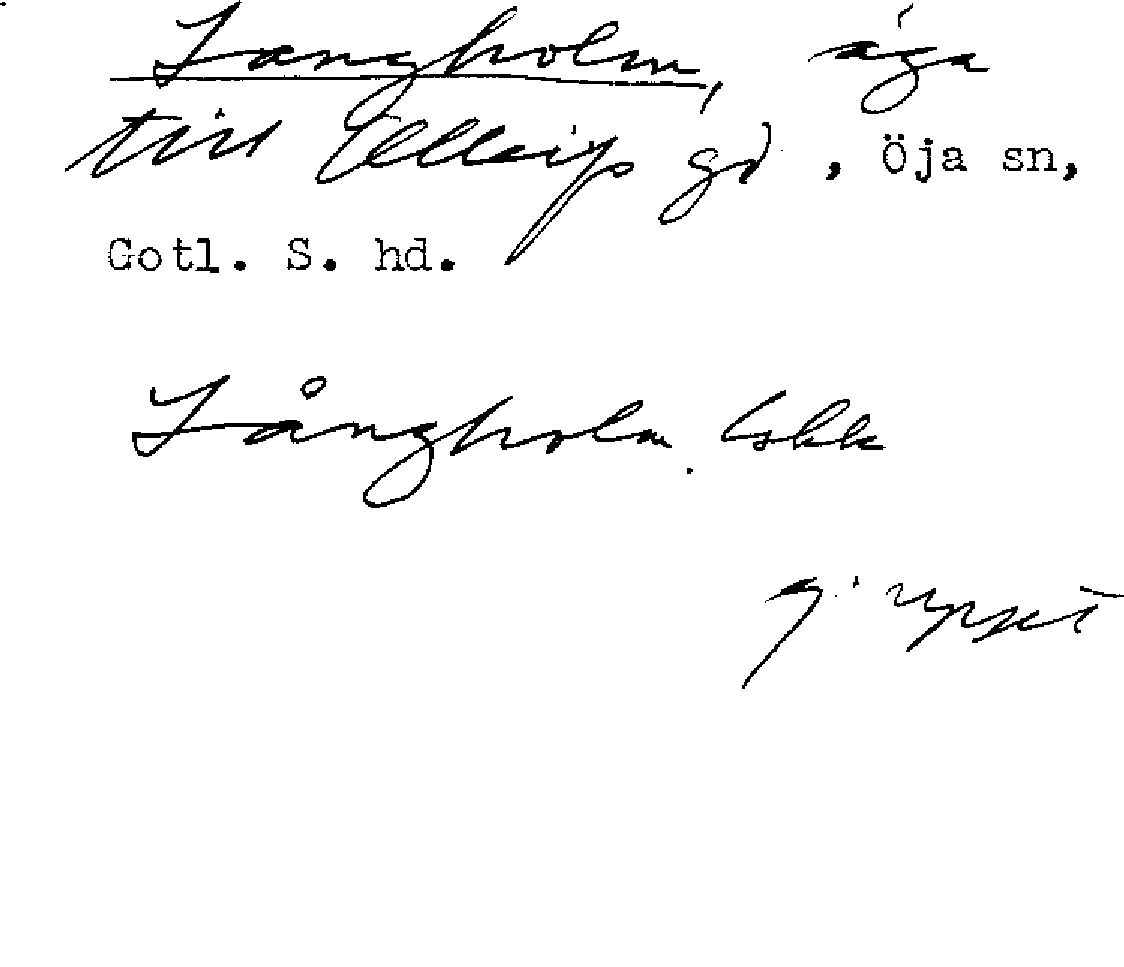 Langholm, äga
till Elleips gd, Öja sn,
Gotl. S. hd.
Långholm. lskk
Ej uppt